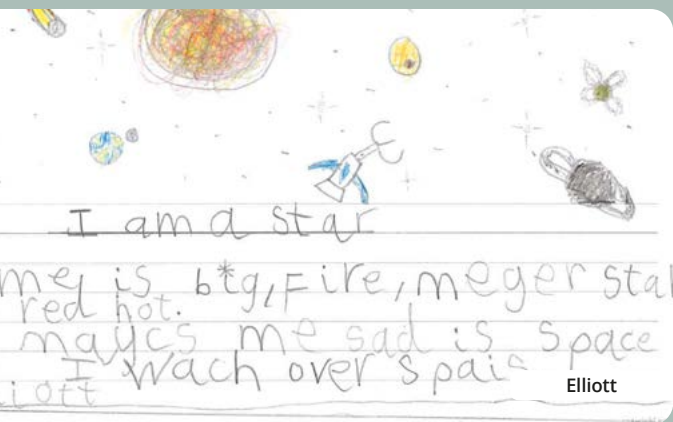 I am a star
me is big, Fire, meger star
red hot.
maycs me sad is space
I wach over spais
iott
Elliott